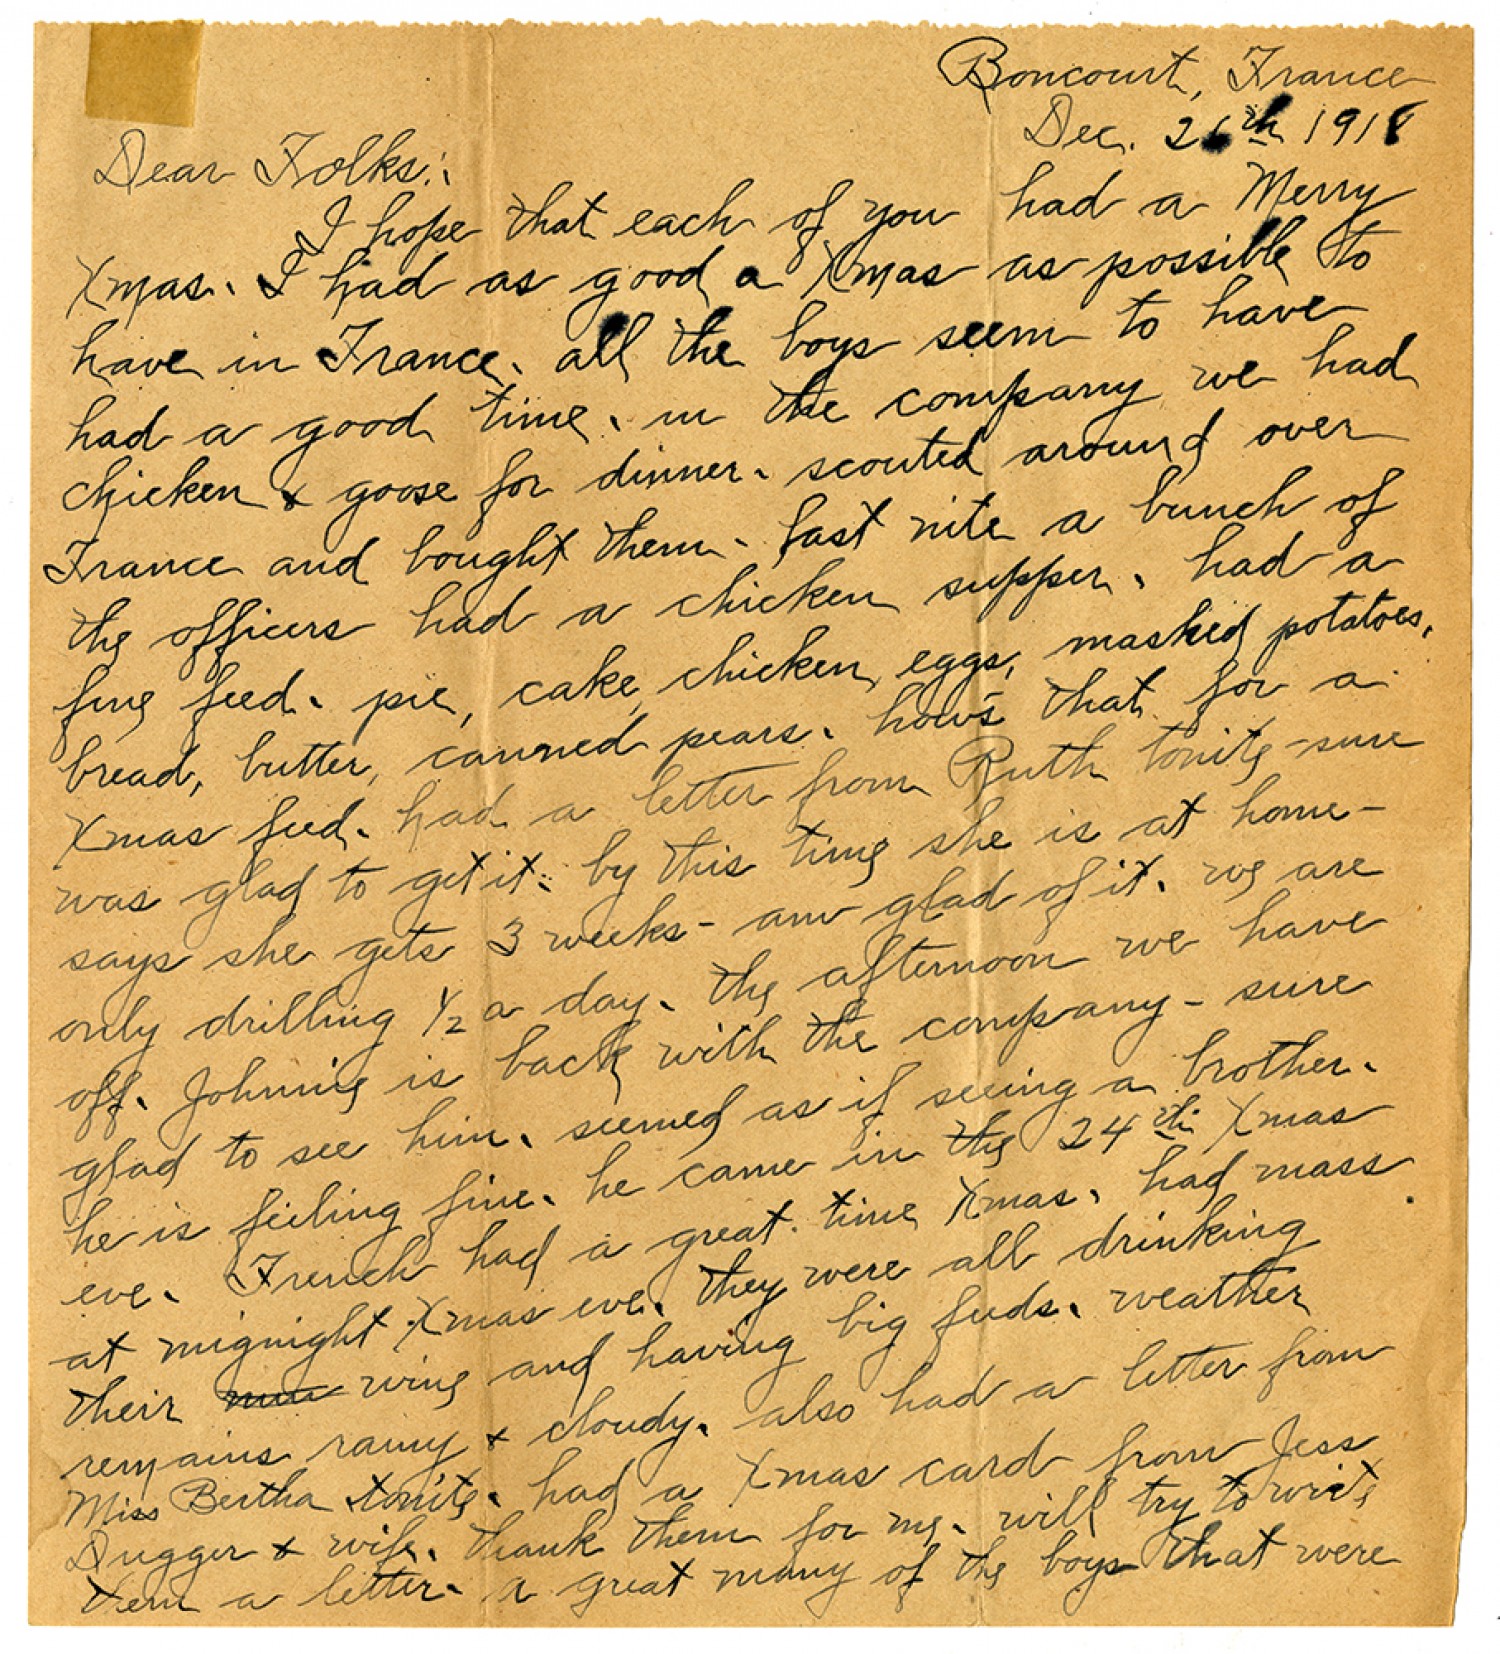 Boncourt, France
Dec. 26th 1918
Dear Folks:
I hope that each of you had a Merry
Xmas. I had as good a Xmas as possible to
have in France. all the boys seem to have
had a good time. in the company we had
chicken & goose for dinner. scouted around over
France and bought them. last nite a bunch of
the officers had a chicken supper. had a
fine feed. pie, cake, chicken, eggs, mashed potatoes,
bread, butter, canned pears. how's that for a
Xmas feed. had a letter from Ruth tonite - sure
was glad to get it. by this time she is at home -
says she gets 3 weeks - am glad of it. we are
only drilling 1/2 a day. the afternoon we have
off. Johnnie is back with the company - sure
glad to see him. seemed as if seeing a brother.
he is feeling fine. he came in the 24th Xmas
eve. French had a great time Xmas. had mass
at mignight Xmas eve. they were all drinking
their wine and having big feeds. weather
remains rainy & cloudy. also had a letter from
Miss Bertha tonite. had a Xmas card from Jess
Dugger & wife. thank them for me. will try to write
them a letter. a great many of the boys that were